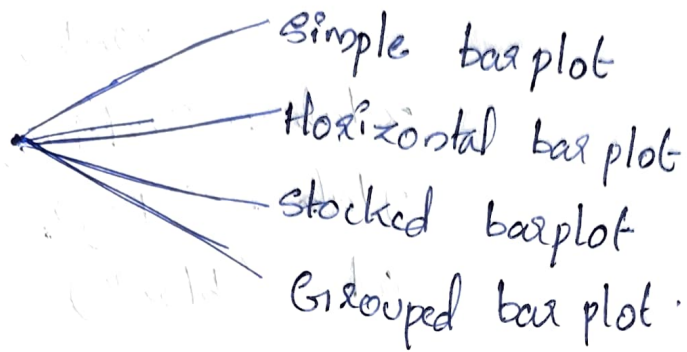 Simple bar plot
Horizontal bar plot
Stocked barplot
Grouped bar plot.